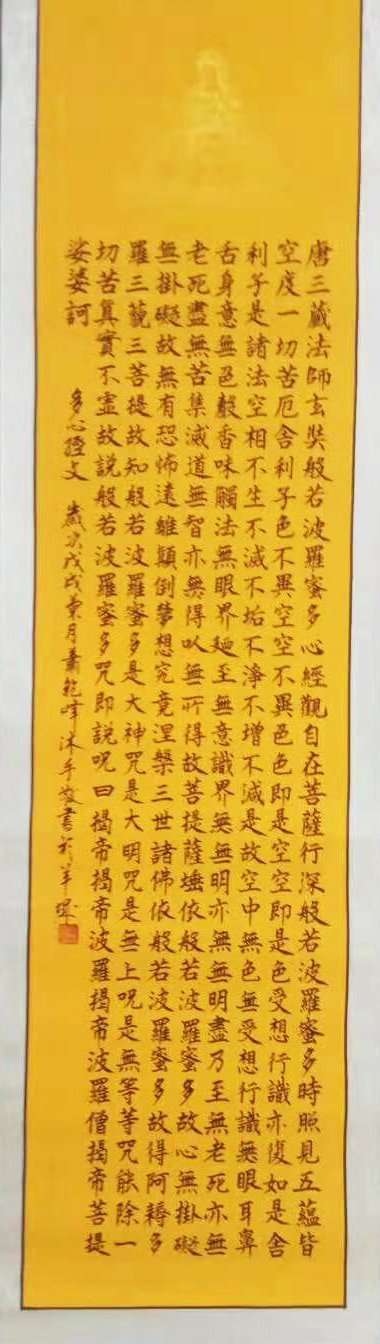 唐三藏法師玄奘般若波羅蜜多心經觀自在菩薩行深般若波羅蜜多時照見五蘊皆
空度一切苦厄舍利子色不異空空不異色色即是空空即是色受想行識亦復如是舍
利子是諸法空相不生不滅不垢不淨不增不減是故空中無色無受想行識無眼耳鼻
舌身意無色聲香味觸法無眼界廼至無意識界無無明亦無無明盡乃至無老死亦無
老死盡無苦集滅道無智亦無得以無所得故菩提薩埵依般若波羅蜜多故心無掛礙
無掛礙故無有恐怖遠離顛倒夢想究竟涅槃三世諸佛依般若波羅蜜多故得阿耨多
羅三藐三菩提故知般若波羅蜜多是大神咒是大明咒是無上呪是無等等咒能除一
切苦真實不虛故説般若波羅蜜多咒即説呪曰揭帝揭帝波羅揭帝波羅僧揭帝菩提
娑婆訶
多心經文 歲次戊戌 月蕭範峰沐手敬書於羊城